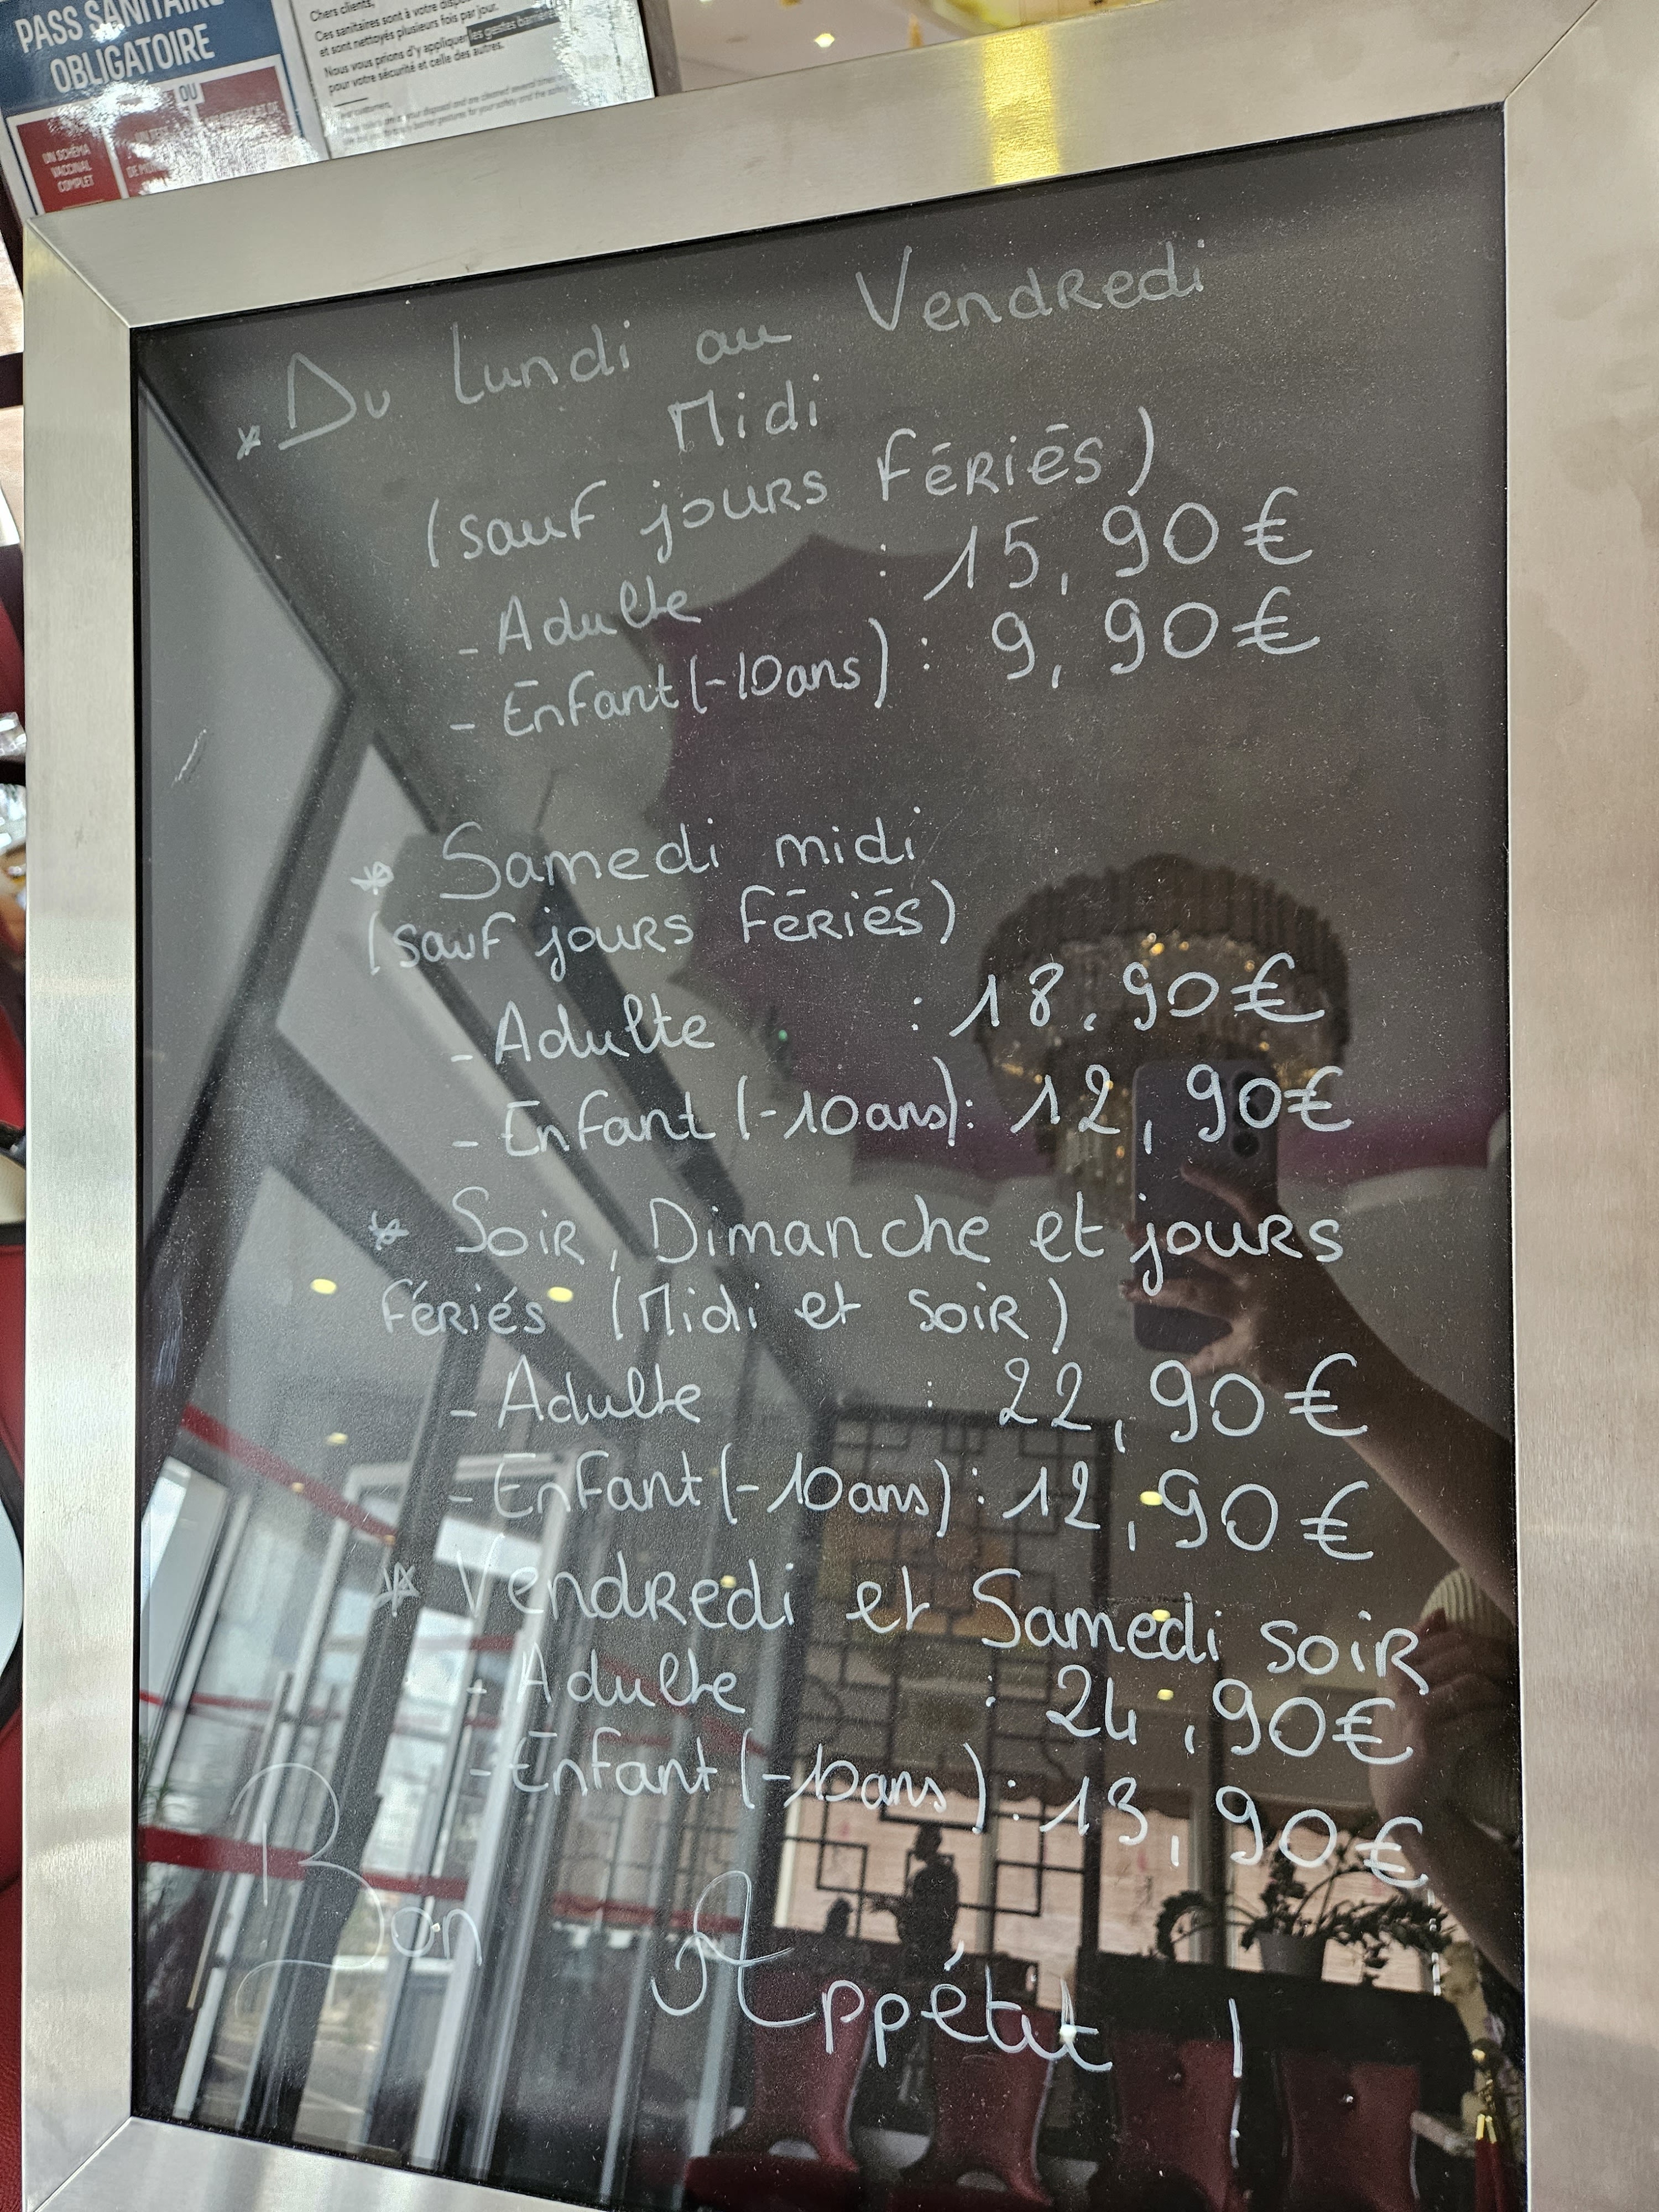 PASS SANITAIRE
OBLIGATOIRE
OU
UN SCHÉMA
VACCINAL
COMPLET
Chers clients,
Ces sanitaires sont à votre
et sont nettoyés plusieurs fois par jour.
Nous vous prions d'y appliquer les gestes
pour votre sécurité et celle des autres.
* Du Lundi au Vendredi
Midi
(sauf jours Fériés)
- Adulte : 15,90€
- Enfant (-10ans) : 9,90€
* Samedi midi
(sauf jours Fériés)
- Adulte : 18,90€
- Enfant (-10ans) : 12,90€
* Soir, Dimanche et jours
Fériés (Midi et soir)
- Adulte : 22,90€
- Enfant (-10ans) : 12,90€
* Vendredi et Samedi soir
- Adulte : 24,90€
- Enfant (-10ans) : 13,90€
Bon Appétit !